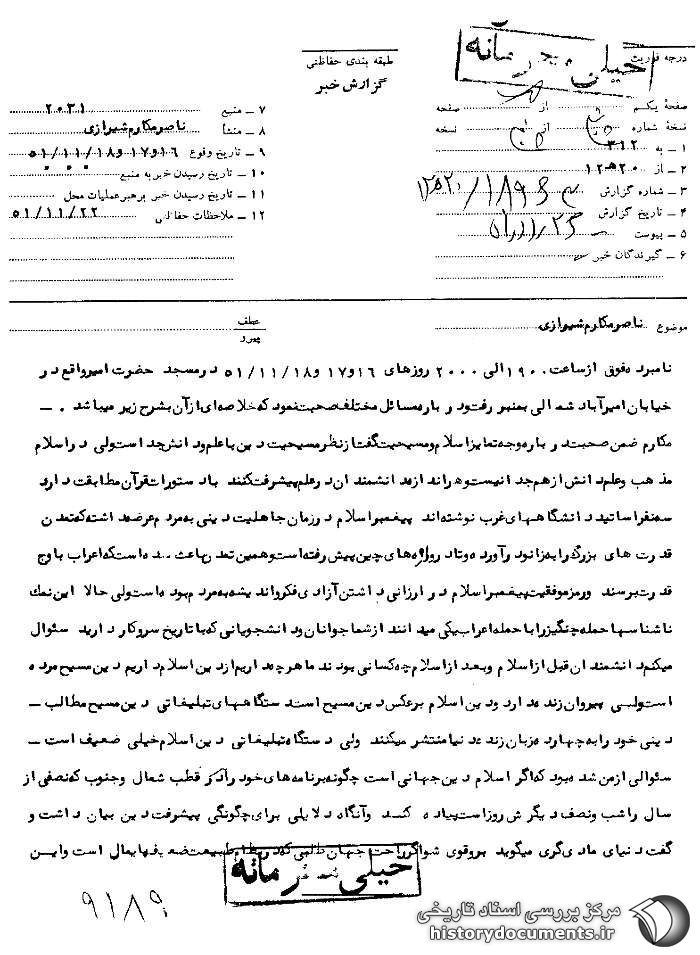 خیلی محرمانه
درجه فوریت
طبقه بندی حفاظتی
گزارش خبر
صفحهٔ یکم از صفحه
نسخهٔ شماره از نسخه
۱ ـ به ۳۱۲
۲ ـ از ۲۰ه۱۲
۳ ـ شماره گزارش
۴ ـ تاریخ گزارش
۵ ـ پیوست
۶ ـ گیرندگان خبر
۷ ـ منبع ۲۰۳۱
۸ ـ منشأ ناصرمکارم شیرازی
۹ ـ تاریخ وقوع ۱۶و۱۷و۵۱/۱۱/۱۸
۱۰ ـ تاریخ رسیدن خبر به منبع
۱۱ ـ تاریخ رسیدن خبر برهبر عملیات محل
۱۲ ـ ملاحظات حفاظتی ۵۱/۱۱/۲۲
موضوع ناصرمکارم شیرازی
عطف
پیرو
نامبرده فوق ازساعت ۱۹۰۰ الی ۲۰۰۰ روزهای ۱۶و۱۷ و۵۱/۱۱/۱۸ درمسجد حضرت امیرواقع در
خیابان امیرآباد شمالی بمنبر رفت ودرباره مسائل مختلف صحبت نمود که خلاصه ای از آن بشرح زیر میباشد . ـ
مکارم ضمن صحبت درباره وجه تمایز اسلام ومسیحیت گفت ازنظر مسیحیت دین با علم ودانش جد است ولی دراسلام
مذهب وعلم دانش ازهم جدا نیست وهراندازه دانشمندان درعلم پیشرفت کنند بادستورات قرآن مطابقت دارد
سه نفر اساتید دانشگاههای غرب نوشته اند پیغمبر اسلام درزمان جاهلیت دینی به مردم عرضه داشته که تمدن
قدرت های بزرگ را به زانو درآورده وتا دروازه های چین پیش رفته است وهمین تمدن باعث شده است که اعراب باوج
قدرت برسند ورمز موفقیت پیغمبر اسلام در ارزانی داشتن آزادی فکر واندیشه به مردم بوده است ولی حالا این نمک
ناشناسها حمله چنگیز را با حمله اعراب یکی میدانند از شما جوانان ودانشجویانی که با تاریخ سروکار دارید سئوال
میکنم دانشمندان قبل از اسلام وبعد از اسلام چه کسانی بودند ما هرچه داریم از دین اسلام داریم دین مسیح مرده
است ولی پیروان زنده دارد ودین اسلام برعکس دین مسیح است دستگاههای تبلیغاتی دین مسیح مطالب ـ
دینی خود را به چهارده زبان زنده دنیا منتشر میکنند ولی دستگاه تبلیغاتی دین اسلام خیلی ضعیف است ـ
سئوالی از من شده بود که اگر اسلام دین جهانی است چگونه برنامه های خود را در قطب شمال وجنوب که نصفی از
سال را شب ونصف دیگرش روز است پیاده کند وآنگاه دلایلی برای چگونگی پیشرفت دین بیان داشت و
گفت دنیای مادی گری میگوید بروقوی شو اگر راحت جهان طلبی که در نظام طبیعت ضعیف پایمال است واین
خیلی محرمانه
۹۱۸۹
مرکز بررسی اسناد تاریخی
historydocuments.ir